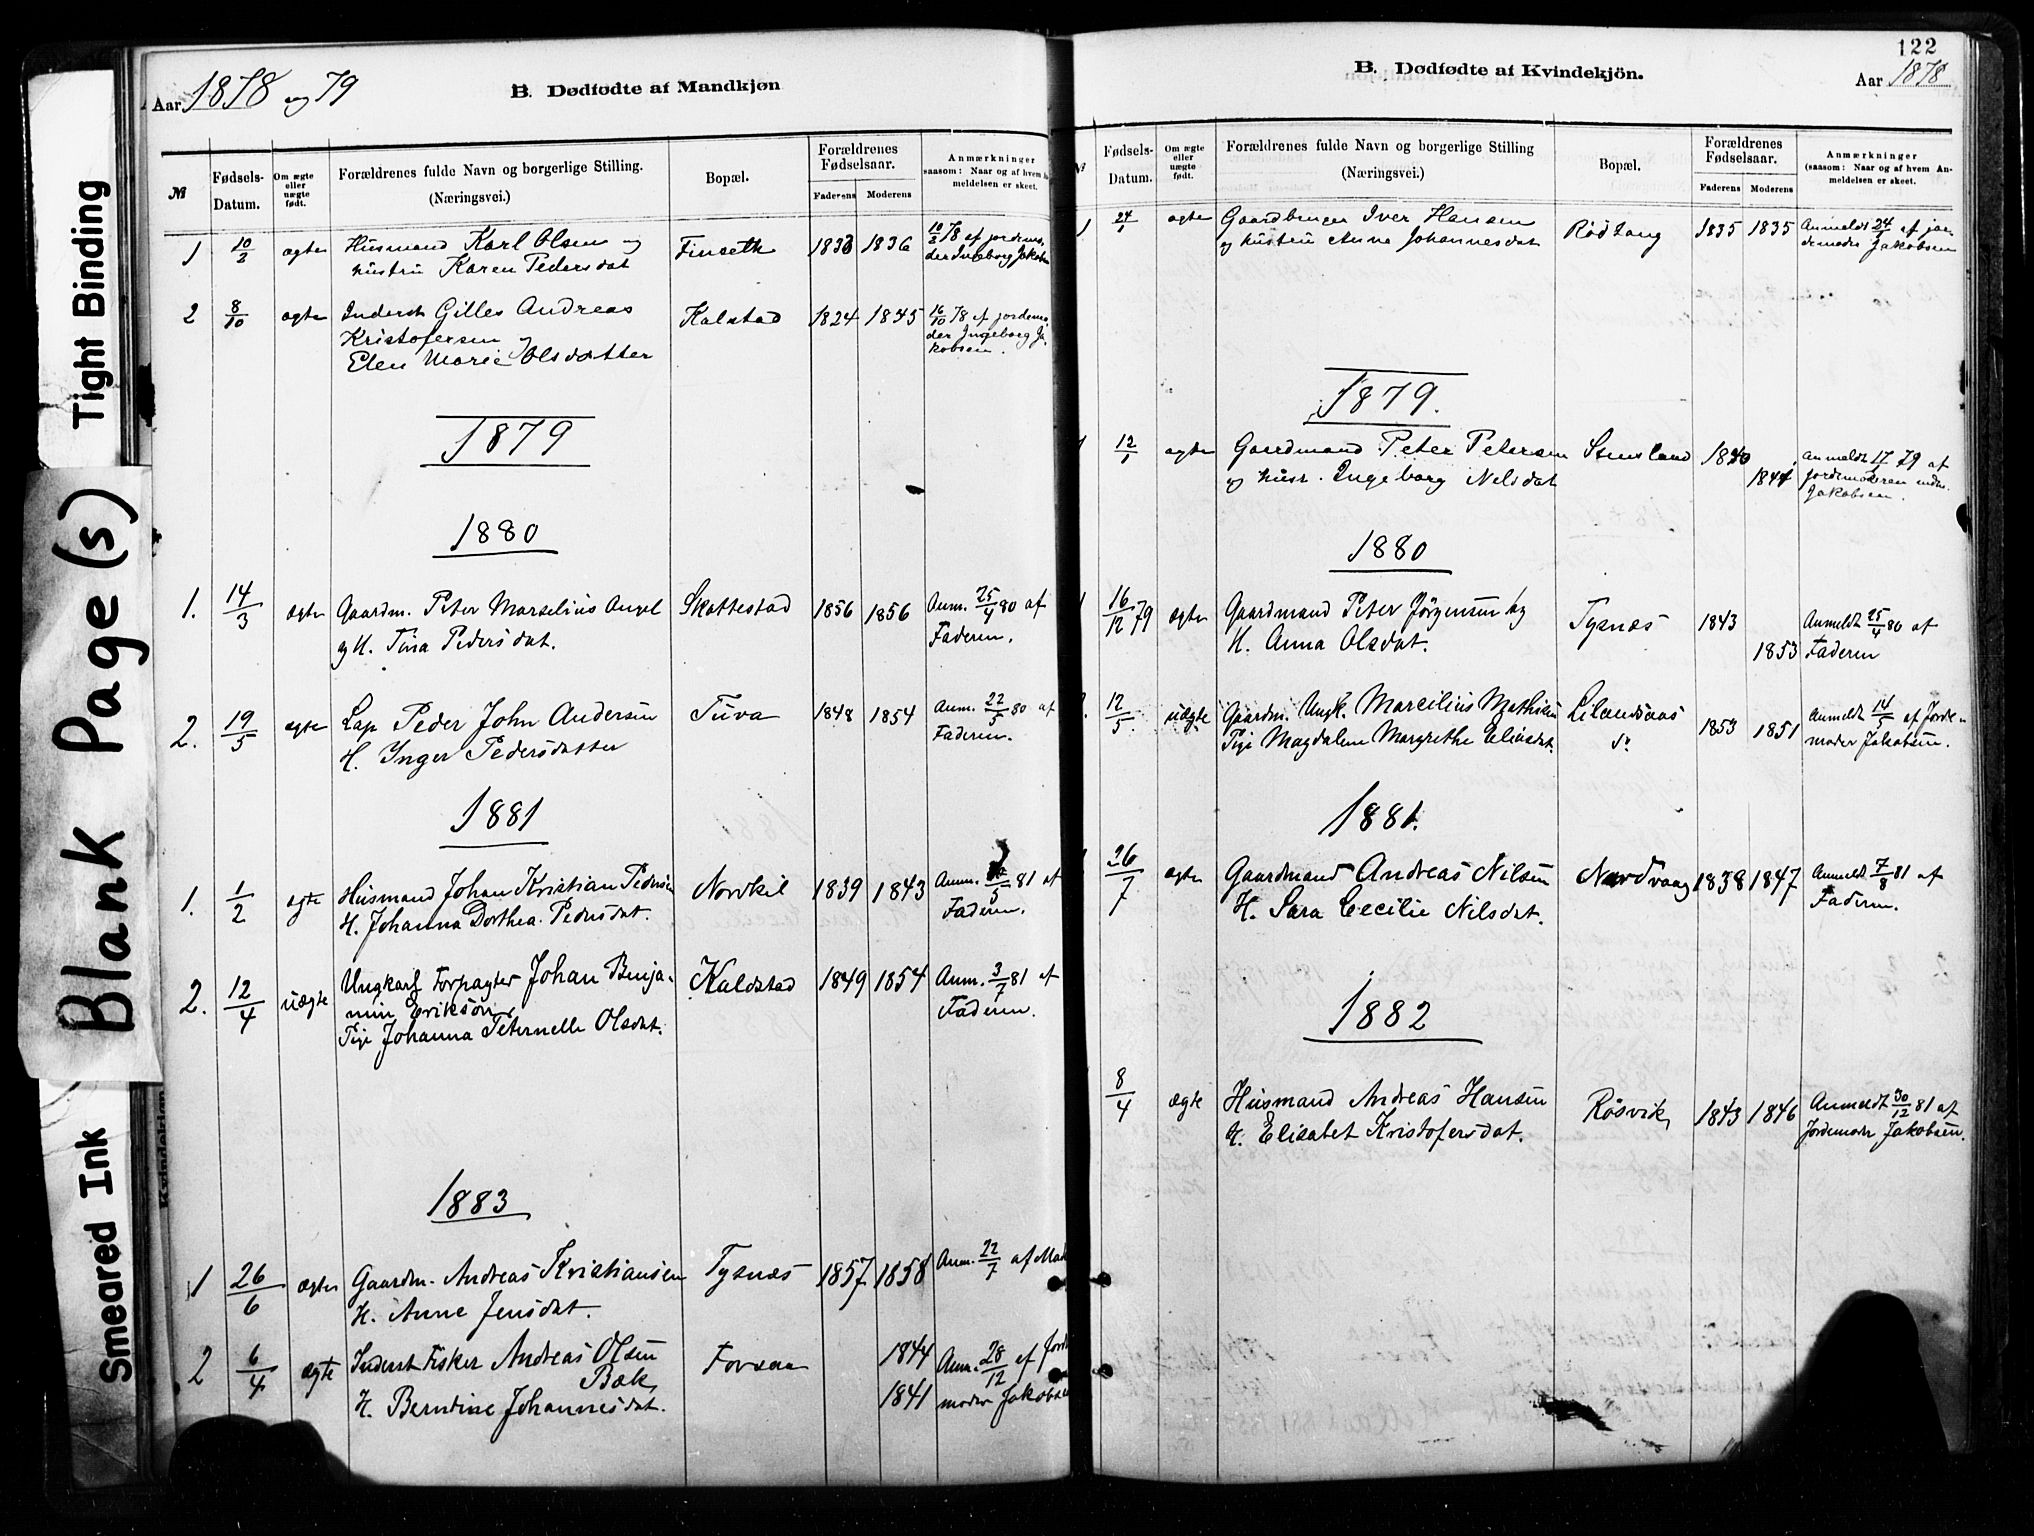 Tight Binding
Blank Page (s)
Smeared Ink
Kvindekjøn
Aar 1878 og 79
B. Dødfødte af Mandkjøn
№
Fødsels-
Datum.
Om ægte
eller
uægte
født.
Forældrenes fulde Navn og borgerlige Stilling.
(Næringsvei.)
Bopæl.
Forældrenes
Fødselsaar.
Faderens
Moderens
Anmærkninger
saasom: Naar og af hvem An-
meldelsen er skeet.
1 10/2 ægte Husmand Karl Olsen og Finseth 1836 10/2 78 af jordemo-
hustru Karen Pedersdat der Ingeborg Jakobs
2 8/10 ægte Inderst Gilles Andreas Kalstad 1824 1845 16/10 78 af jordemo
Kristofersen og der Ingeborg Ja-
Elen Marie Olsdatter kobsen.
1879
1880
1. 14/3 ægte Gaardm. Peter Marselius Angel Skottestad 1856 1856 Anm. 25/4 80 af
og H. Tina Pedersdat. Faderen.
2. 19/5 ægte Lap Peder John Andersen Tuva 1848 1854 Anm. 22/5 80 af
H. Inger Pedersdatter Faderen.
1881
1. 1/2 ægte Husmand Johan Kristian Pedersen Nordkil 1839 1843 Anm. /5 81 af
H. Johanna Dorthea Pedersdat. Faderen.
2. 12/4 uægte Ungkarl Forpagter Johan Benja- Kaldstad 1849 1854 Anm. 3/7 81 af
min Eriksøn, Faderen.
Pige Johanna Peternelle Olsdat.
1883
1 26/6 ægte Gaardm. Andreas Kristiansen Tysnæs 1857 1858 Anm. 22/7 af Mod
H. Anne Jensdat.
2 6/4 ægte Inderst Fisker Andreas Olsen Forsaa 1844 Anm. 28/12 af Jord
Bæk,
H. Berntine Johannesdat. 1841 moder Jakobsen
122
B. Dødfødte af Kvindekjön.
Aar 1878
№
Fødsels-
Datum.
Om ægte
eller
uægte
født.
Forældrenes fulde Navn og borgerlige Stilling
(Næringsvei.)
Bopæl.
Forældrenes
Fødselsaar.
Faderens
Moderens
Anmærkninger
(saasom: Naar og af hvem An-
meldelsen er skeet.
1 24/1 ægte Gaardbruger Iver Hansen Rødtang 1835 1835 Anmeldt 24/1 af jor-
og hustru Anne Johannesdat demoder Jakobsen
1879.
12/1 ægte Gaardmand Peter Petersen Stensland 1840 Anmeldt 17/ 79 af
og hustr. Ingeborg Nilsdat 1844 jordemoderen
Jakobsen.
1880
16/12 79 ægte Gaardmand Peter Jörgensen og Tysnæs 1843 Anmeldt 25/4 80 af
H. Anna Olsdat. 1853 Faderen
12/5. uægte Gaardm. Ungk. Marcilius Mathisen 1853 1851 Anmeldt 14/5 af Jorde-
Pige Magdalene Margrethe Eliasdat. moder Jakobsen.
1881.
26/7 ægte Gaardmand Andreas Nilsen Nordvaag 1838 1847 Anmeldt 7/8 81 af
H. Sara Cecilie Nilsdat. Faderen.
1882
8/4 ægte Husmand Andreas Hansen Røsvik, 1843 1846 Anmeldt 30/12 81 af
H. Elisabet Kristofersdat. Jordemoder Jakobsen.